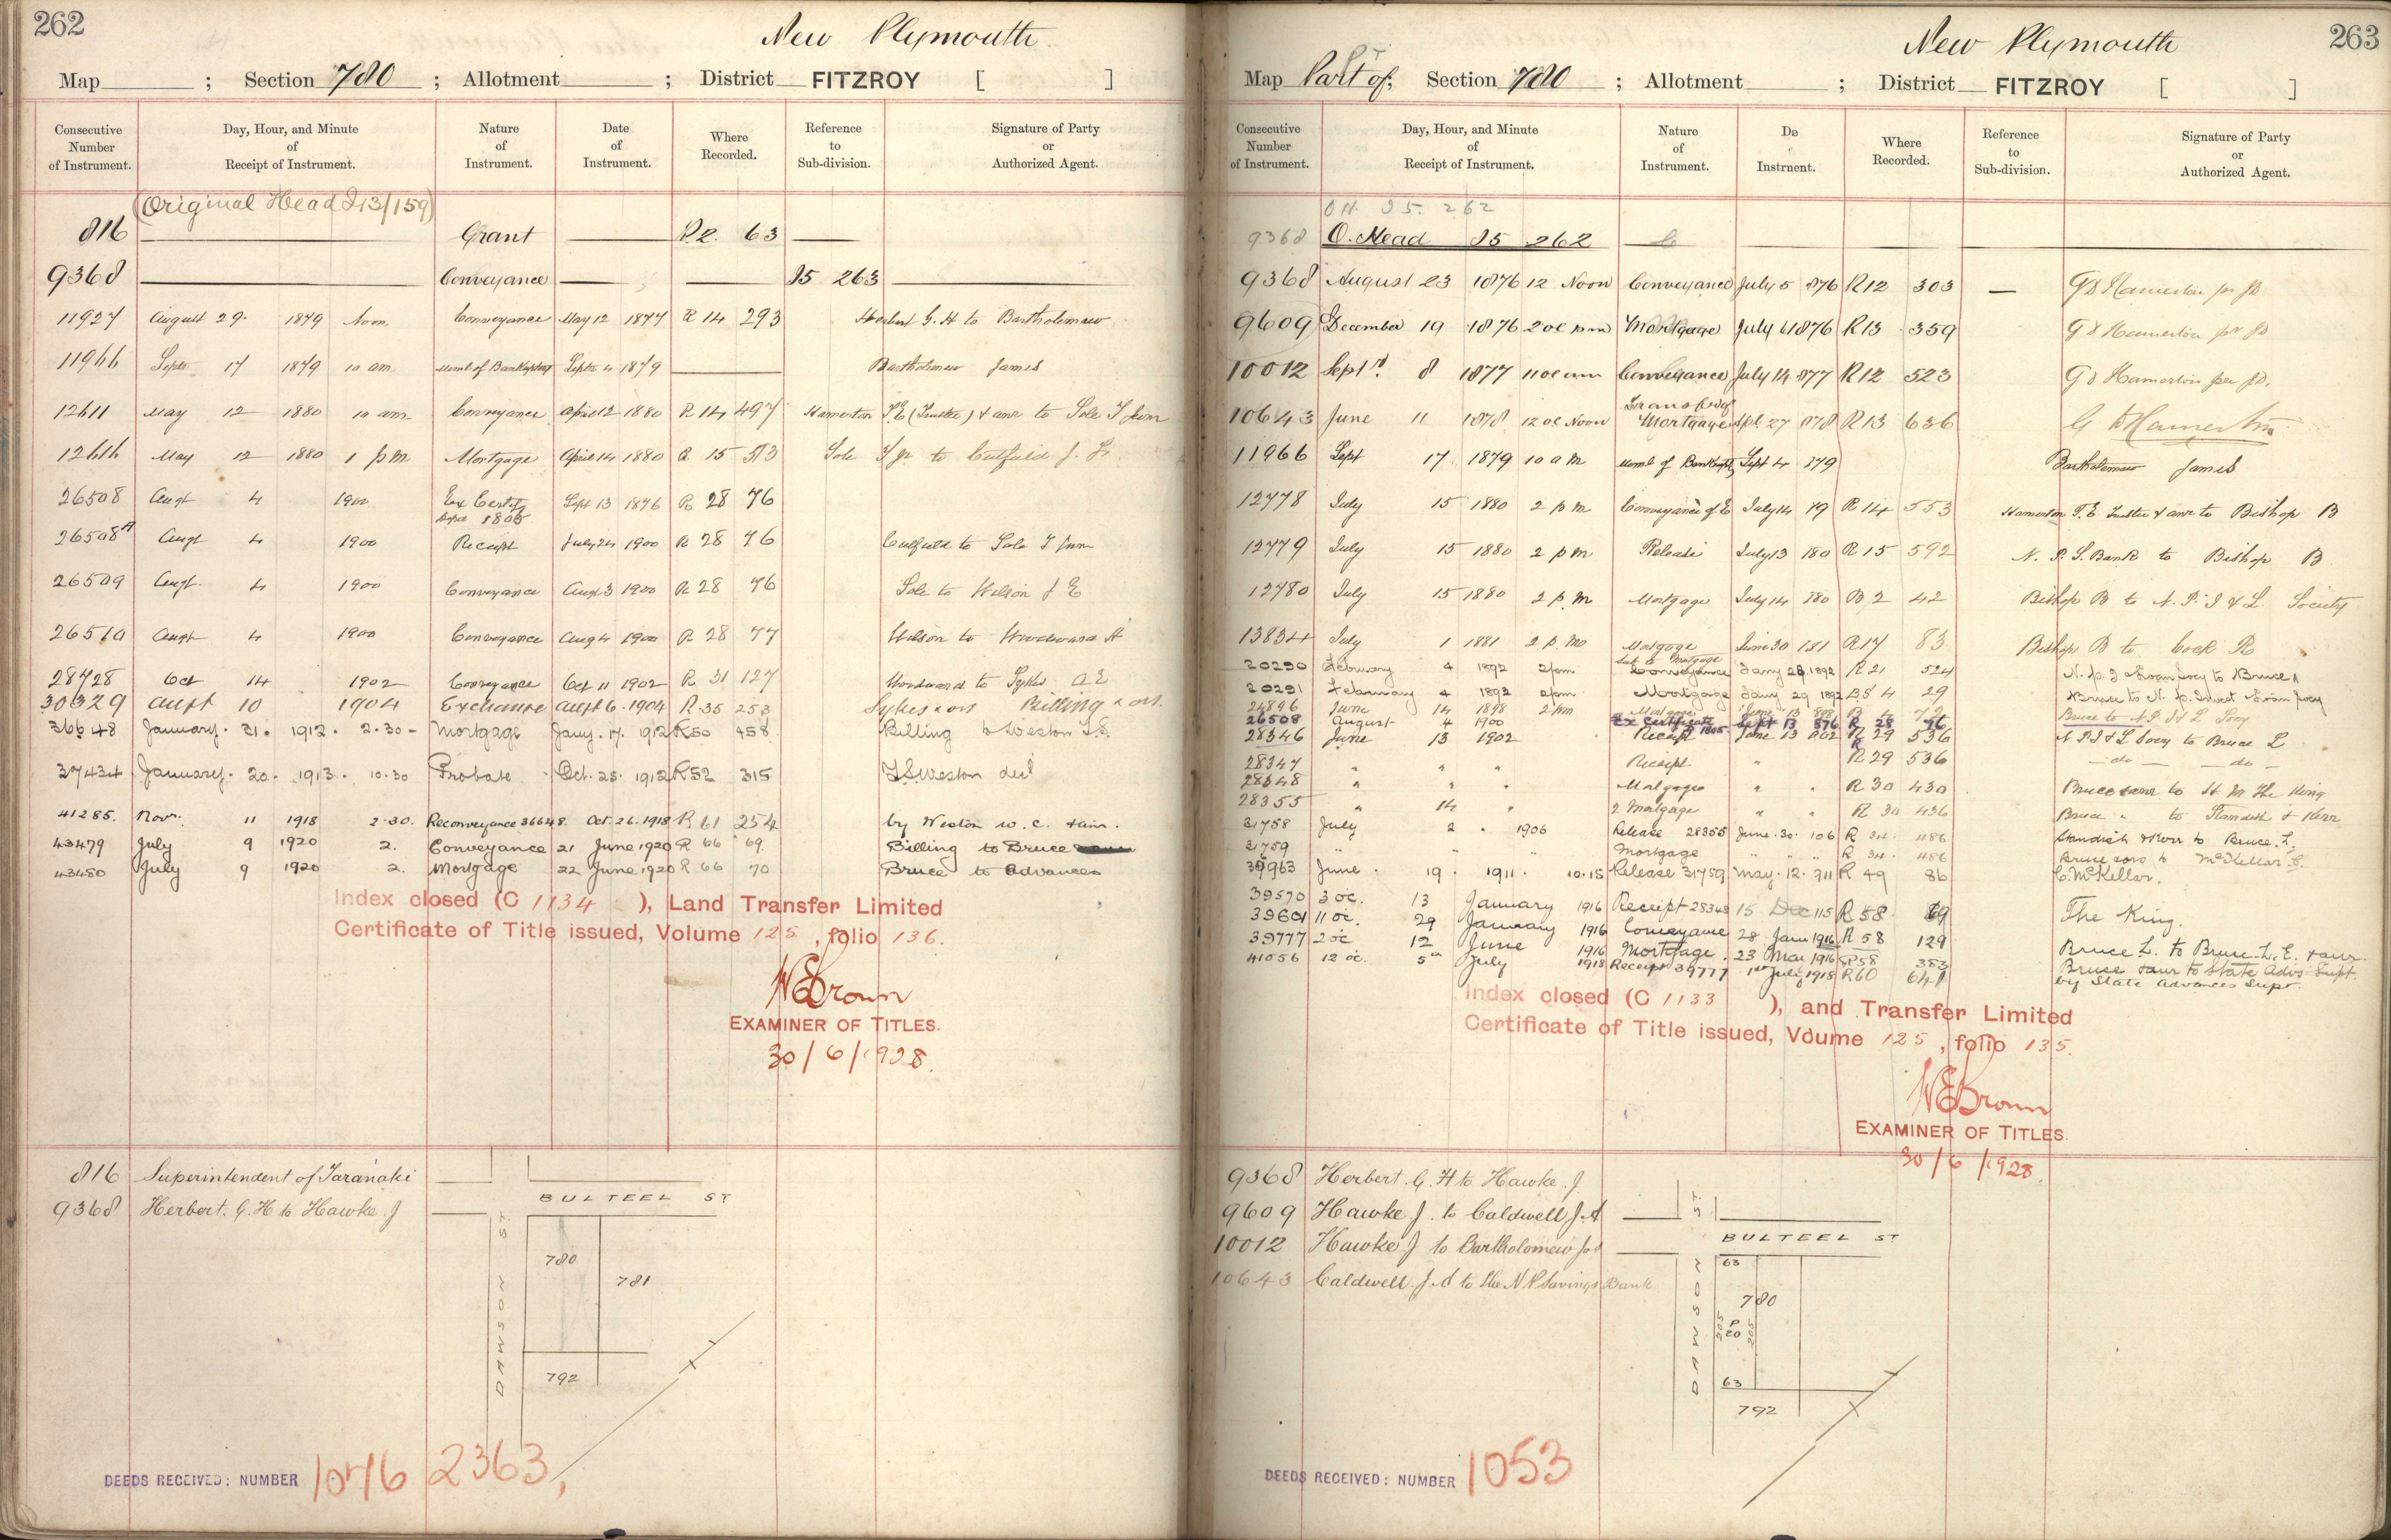 262
New Plymouth
Map ; Section 780 ; Allotment ; District FITZROY [ ]
Consecutive Number of Instrument. Day, Hour, and Minute of Receipt of Instrument. Nature of Instrument. Date of Instrument. Where Recorded. Reference to Sub-division. Signature of Party or Authorized Agent.
(Original Head I13/159)
816 Grant R2. 63
9368 Conveyance I5 263
11927 August 29. 1879 Noon Conveyance May 12 1877 R 14 293 Herbert G. H to Bartholomew
11966 Septr 17 1879 10 am Meml of Bankruptcy Septr 4 1879 Bartholomew James
12611 May 12 1880 10 am Conveyance April 12 1880 R 14 497 Hamerton T.E (Trustee) & anr to Sole T junr
12616 May 12 1880 1 pm Mortgage April 14 1880 R 15 513 Sole T jr. to Calfield J. L.
26508 Augt 4 1900 Ex Certif Sept 13 1876 R 28 76
26508A Augt 4 1900 Receipt July 24 1900 R 28 76 to Sole T junr
26509 Augt 4 1900 Conveyance Aug 3 1900 R 28 76 Sole to Wilson J E
26510 Augt 4 1900 Conveyance Aug 4 1900 R 28 77 Wilson to Woodward A
28728 Oct 14 1902 Conveyance Oct 11 1902 R 31 127 Woodward to Sykes A E
30329 Augt 10 1904 Exchange Augt 6. 1904 R. 35 253 Sykes & ors Billing & ors.
36648 January. 31. 1912. 2.30 - Mortgage Jany. 17. 1912 R50 458 Billing to Weston T.S.
37434 January. 20. 1913. 10.30 Probate Oct. 25. 1912 R52 315 T.S. Weston decd
41285. Novr. 11 1918 2.30. Reconveyance 36648. Oct. 26. 1918 R 61 254 by Weston W. C. & anr.
43479 July 9 1920 2. Conveyance 21 June 1920 R 66 69 Billing to Bruce
43480 July 9 1920 2. Mortgage 22 June 1920 R 66 70 Bruce to Advances
Index closed (C 1134 ), Land Transfer Limited
Certificate of Title issued, Volume 125, folio 136.
W E Brown
EXAMINER OF TITLES.
30/6/1928.
816 Superintendent of Taranaki
9368 Herbert. G. H to Hawke. J
BULTEEL ST
DAWSON ST
780
781
792
DEEDS RECEIVED: NUMBER 1076 2363,
263
New Plymouth
Map Part of; Section 780 ; Allotment ; District FITZROY [ ]
Consecutive Number of Instrument. Day, Hour, and Minute of Receipt of Instrument. Nature of Instrument. Da Instrnent. Where Recorded. Reference to Sub-division. Signature of Party or Authorized Agent.
O H. I5. 262
9368 O. Head I5 262
9368 August 23 1876 12 Noon Conveyance July 5 876 R12 303 G D Hamerton per JD
9609 December 19 1876 2 oc pm Mortgage July 6 1876 R13 359 G D Hamerton pr JD
10012 Septr. 8 1877 11 oc am Conveyance July 14 877 R12 523 G D Hamerton per JD.
10643 June 11 1878 12 oc Noon Transfer of Mortgage Apl 27 878 R13 636 G D Hamerton
11966 Sept 17 1879 10 am Meml of Bankruptcy Sept 4 179 Bartholomew James
12778 July 15 1880 2 pm Conveyance of E July 14 79 R 14 553 Hamerton T. E Trustee & anr to Bishop B
12779 July 15 1880 2 pm Release July 13 180 R 15 592 N. P. S. Bank to Bishop B
12780 July 15 1880 2 p.m Mortgage July 14 780 B 2 42 Bishop B to N. P. I & L. Society
13834 July 1 1881 2 p. m Mortgage June 30 181 R17 83 Bishop B to Cock R
20290 February 4 1892 2 pm Sub to Mortgage Conveyance Jany 28 1892 R 21 524 to Bruce
20291 February 4 1892 2 pm Mortgage Jany 29 1892 B5 4 29 Bruce to N. P. Invest & Loan Socy
24896 June 14 1898 2 pm Mortgage Bruce to N P I & L Socy
26508 August 4 1900 Ex Certificate Sept 13 876 R 28 76
28346 June 13 1902 Receipt June 13 902 R 29 536 N P I & L Socy to Bruce L
28347 " " " Receipt " R 29 536 - do - - do -
28348 " " " Mortgage " " R 30 430 Bruce & anr to H M The King
28355 " 14 " 2 Mortgage " " R 30 436 Bruce " to Standish & Kerr
31758 July 2 " 1906 Release 28355 June. 30. 106 R 34. 486 Standish & Kerr to Bruce. L.
31759 " " " Mortgage " " " R 34. 486 Bruce & ors to McKellar. C.
39963 June. 19. 1911. 10.15 Release 31759 May. 12. 911 R 49 86 C. McKellar.
39570 3 oc. 13 January 1916 Receipt 28348 15 Dec 115 R 58 69 The King.
39601 11 oc. 29 January 1916 Conveyance 28 Jan 1916 R 58 129 Bruce L. to Bruce. L. E. & anr.
39777 2 oc 12 June 1916 Mortgage. 23 Mar 1916 R58 383 Bruce & anr to State Advs Supt.
41056 12 oc. 5th July 1918 Receipt 39777 1st July 1918 R60 641 by State Advances Supt.
Index closed (C 1133 ), and Transfer Limited
Certificate of Title issued, Voume 125, folio 135.
W E Brown
EXAMINER OF TITLES.
30/6/1928.
9368 Herbert. G. H to Hawke. J
9609 Hawke J. to Caldwell J. A
10012 Hawke J to Bartholomew Jas
10643 Caldwell. J. A to the N P Savings Bank
ST
BULTEEL ST
DAWSON
63
780
205
P
20
205
63
792
DEEDS RECEIVED: NUMBER 1053